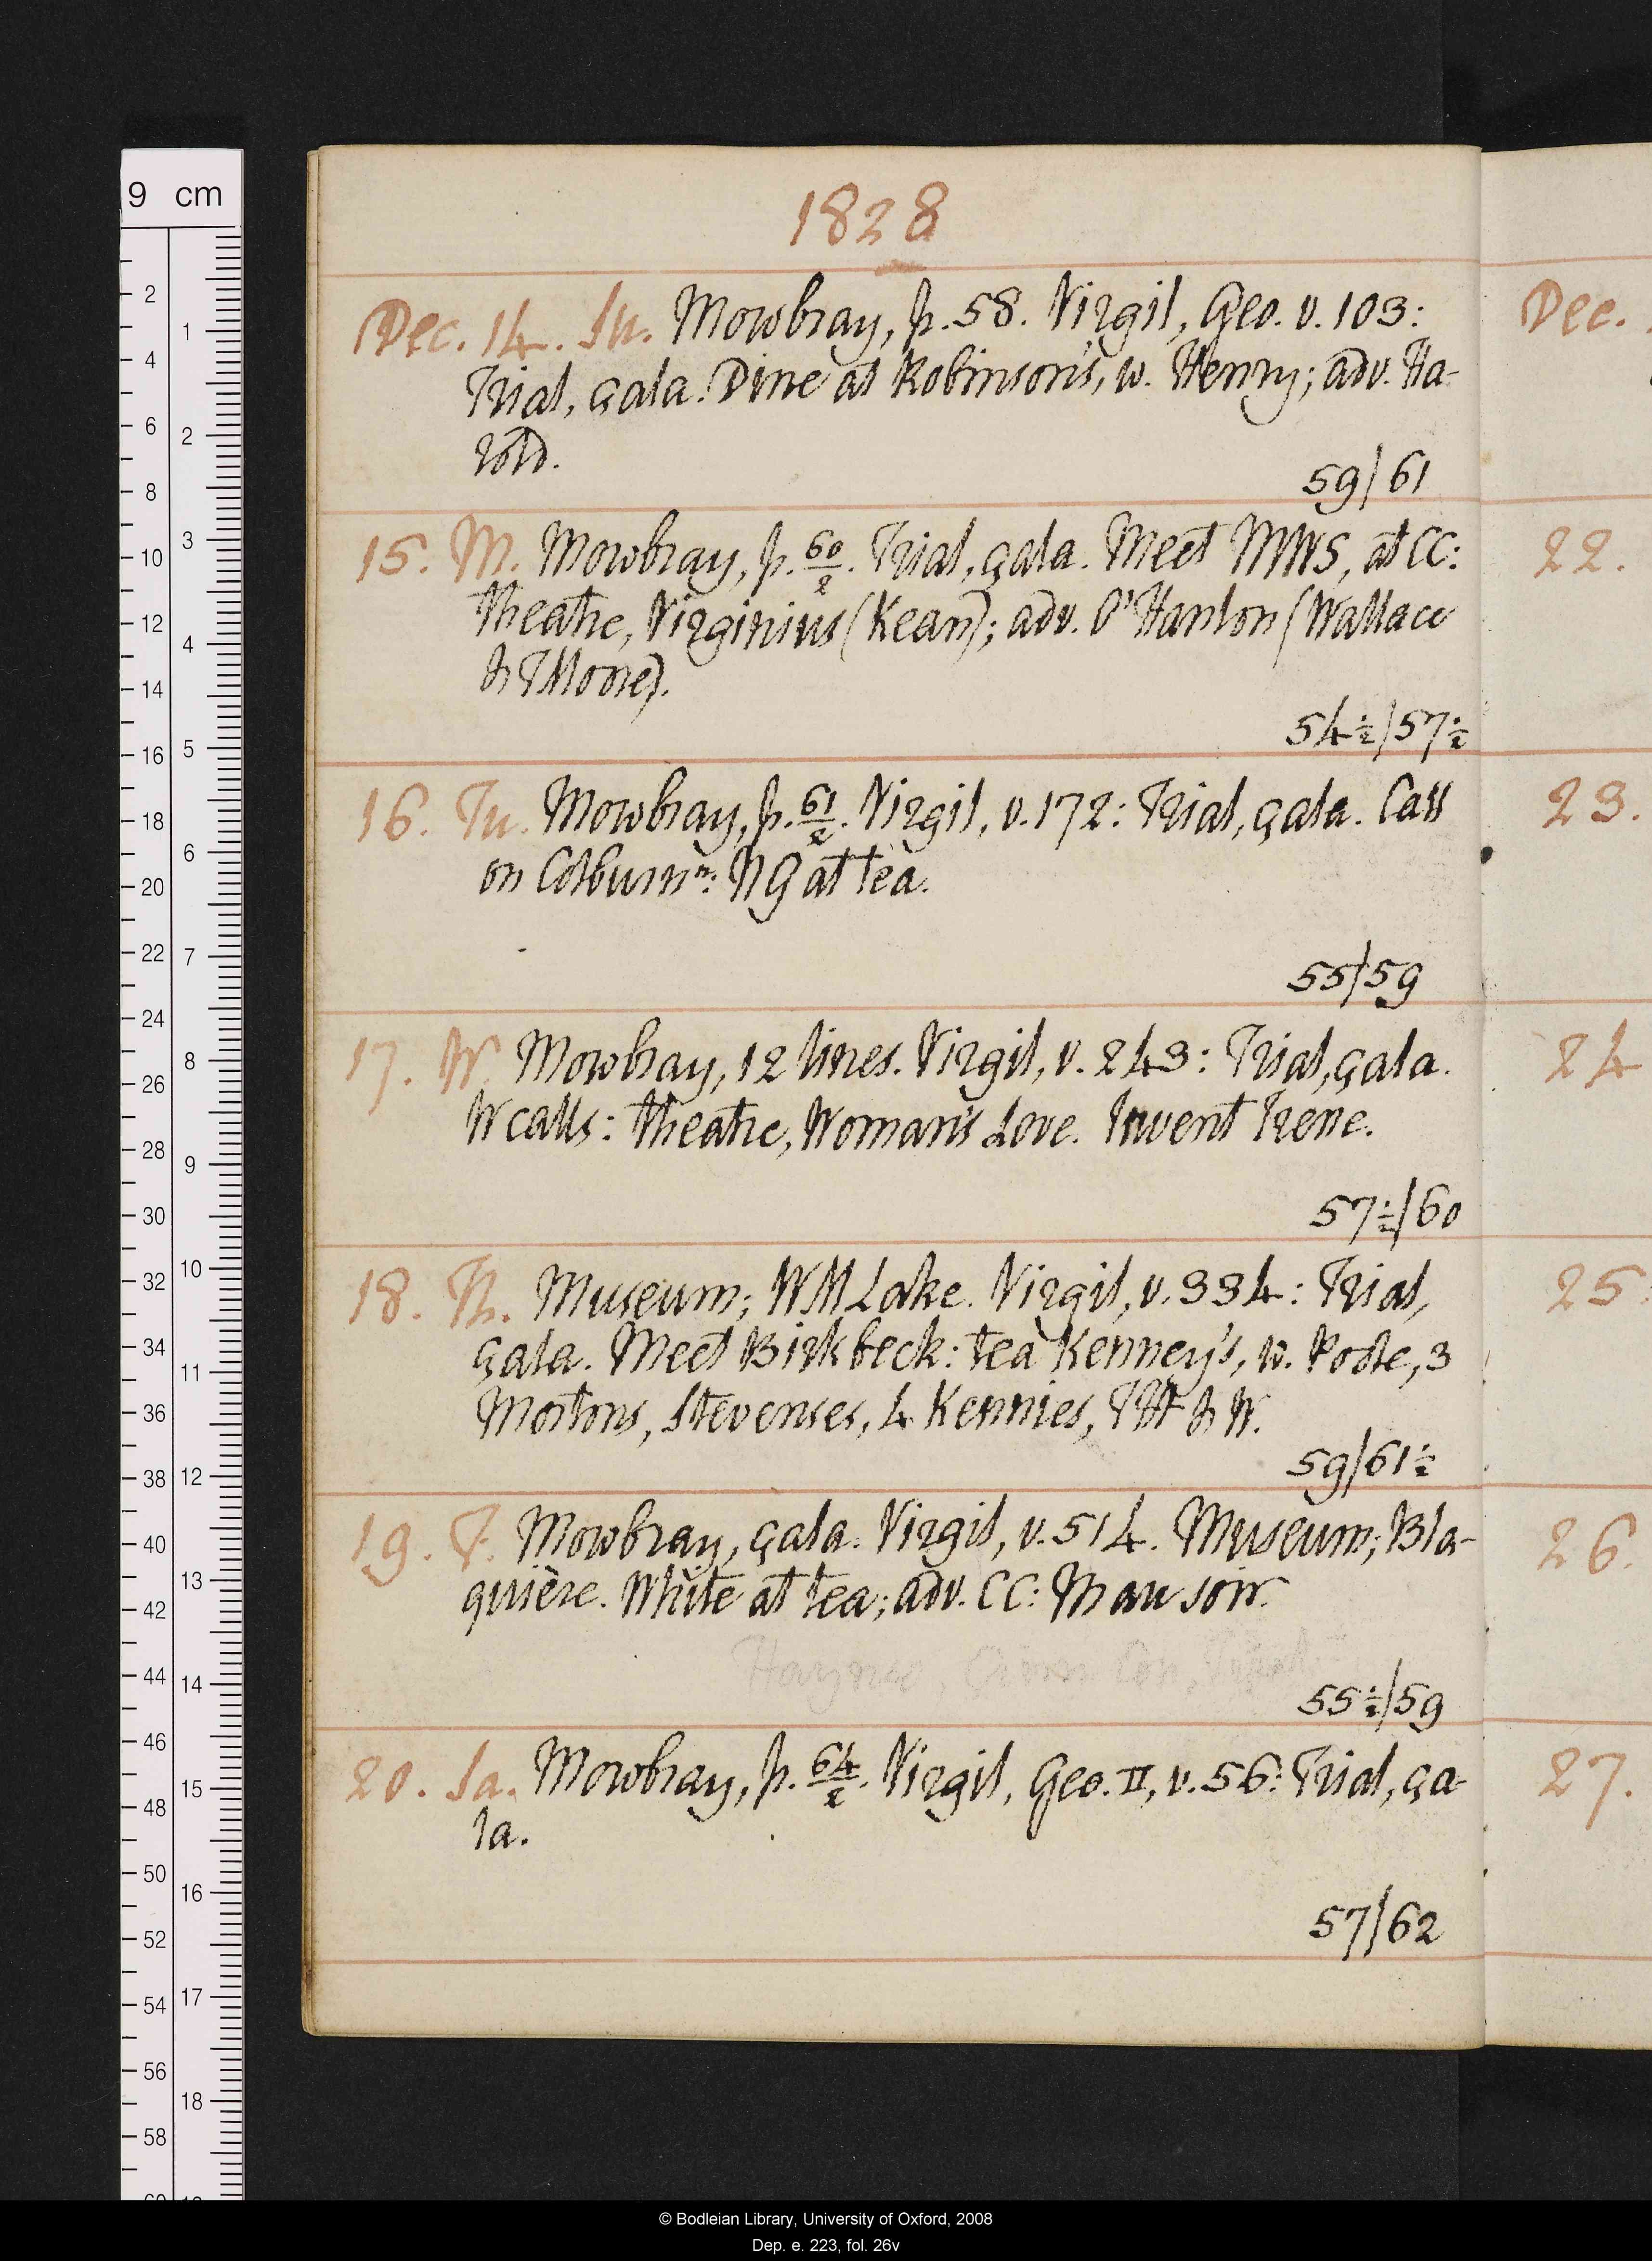 1828
Dec. 14. Su. Mowbray, p. 58. Virgil, Geo. v. 103:
Trial, çala. Dine at Robinson's, w. Henry; adv. Ha-
rold.
59/61
15. M. Mowbray, p. 60/2. Trial, çala. Meet MWS, at CC:
theatre, Virginius (Kean); adv. O'Hanlon (Wallace
& TMoore).
54½/57½
16. Tu. Mowbray, p. 61/2. Virgil, v. 172: Trial, çala. Call
on Colburn n: NG at tea.
55/59
17. W. Mowbray, 12 lines. Virgil, v. 243: Trial, çala.
W calls: theatre, Woman's Love. Invent Irene.
57½/60
18. Th. Museum; WM Lake. Virgil, v. 334: Trial,
çala. Meet Birkbeck: tea Kenney's, w. Poole, 3
Mortons, Stevenses, 4 Kennies, TH & W.
59/61½
19. F. Mowbray, çala. Virgil, v. 514. Museum; Bla-
quière. White at tea; adv. CC: M au soir.
55½/59
20. Sa. Mowbray, p. 64/2. Virgil, Geo. II, v. 56: Trial, ça-
la.
57/62
Dec.
22.
23.
24
25
26.
27.
9 cm
© Bodleian Library, University of Oxford, 2008
Dep. e. 223, fol. 26v